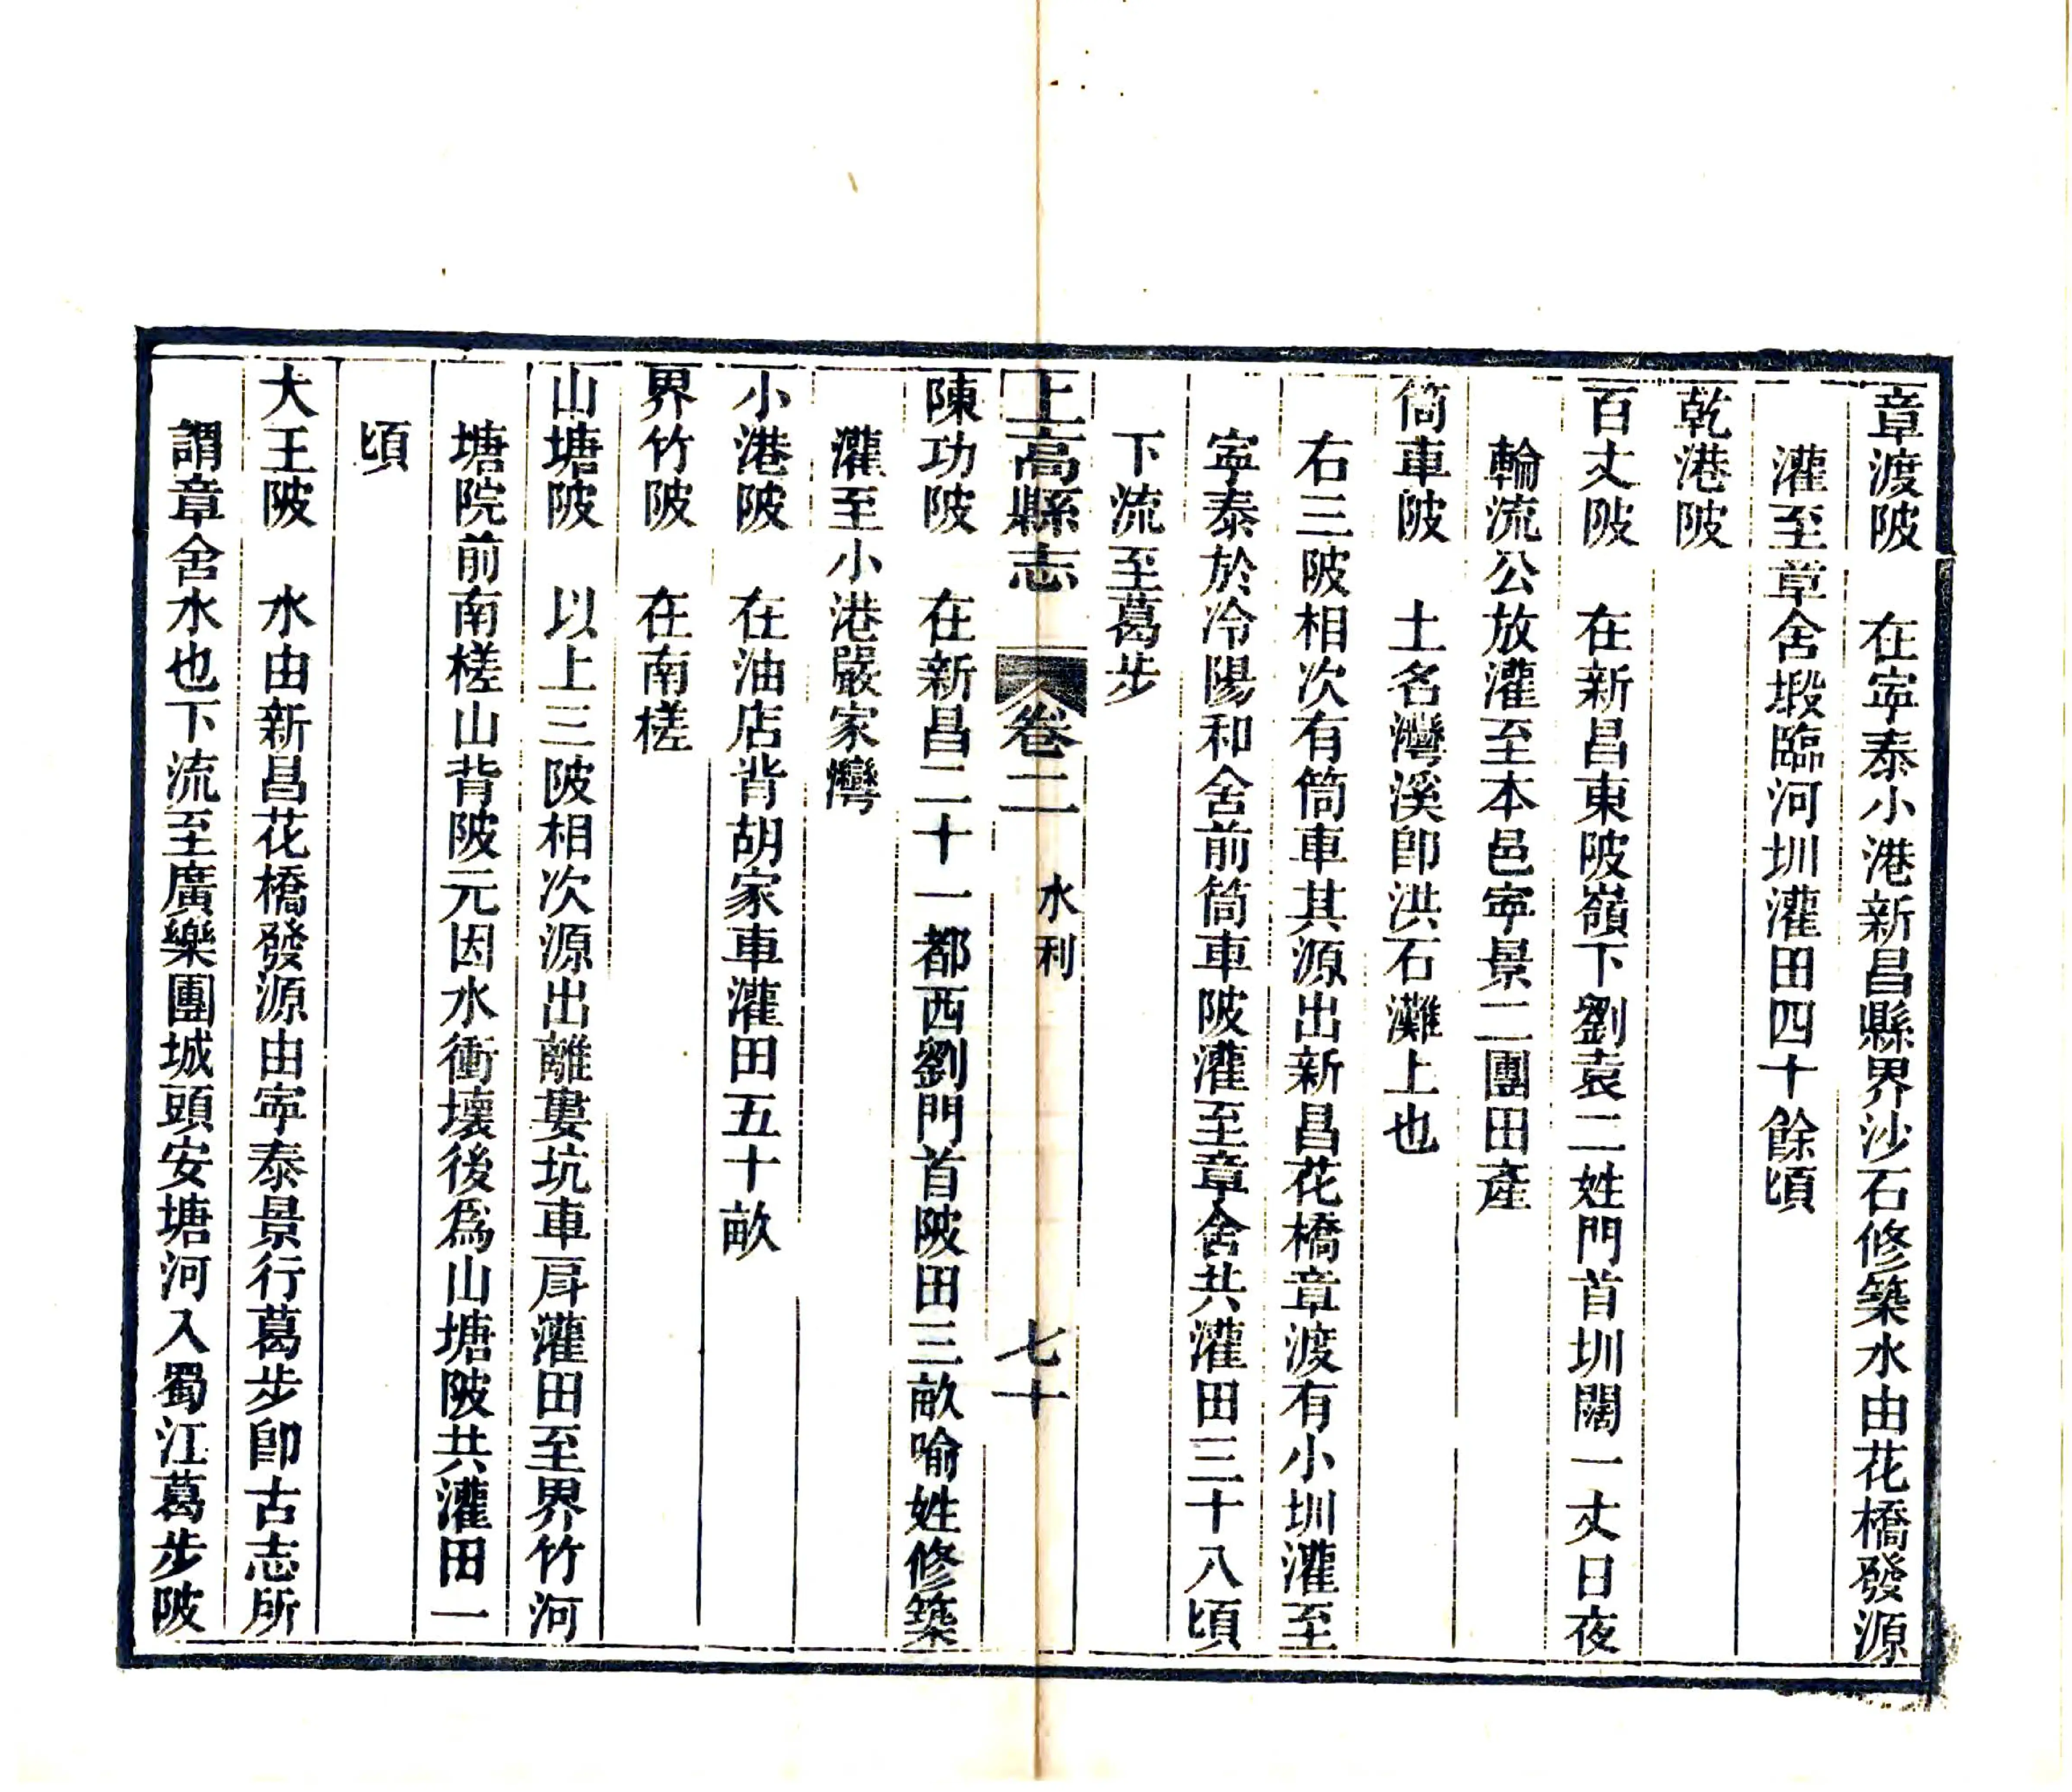 章渡陂　在寧泰小港新昌縣界沙石修築水由花橋發源
灌至章舍塅臨河圳灌田四十餘頃
乾港陂
百丈陂　在新昌東陂嶺下劉袁二姓門首圳闊一丈日夜
輪流公放灌至本邑寧景二團田產
筒車陂　土名灣溪卽洪石灘上也
右三陂相次有筒車其源出新昌花橋章渡有小圳灌至
寧泰於冷陽和舍前筒車陂灌至章舍共灌田三十八頃
下流至葛步
上高縣志　卷二　水利　七十
陳功陂　在新昌二十一都西劉門首陂田三畝喻姓修築
灌至小港嚴家灣
小港陂　在油店背胡家車灌田五十畝
界竹陂　在南槎
山塘陂　以上三陂相次源出離婁坑車戽灌田至界竹河
塘院前南槎山背陂元因水衝壞後為山塘陂共灌田一
頃
大王陂　水由新昌花橋發源由寧泰景行葛步卽古志所
謂章舍水也下流至廣樂團城頭安塘河入蜀江葛步陂